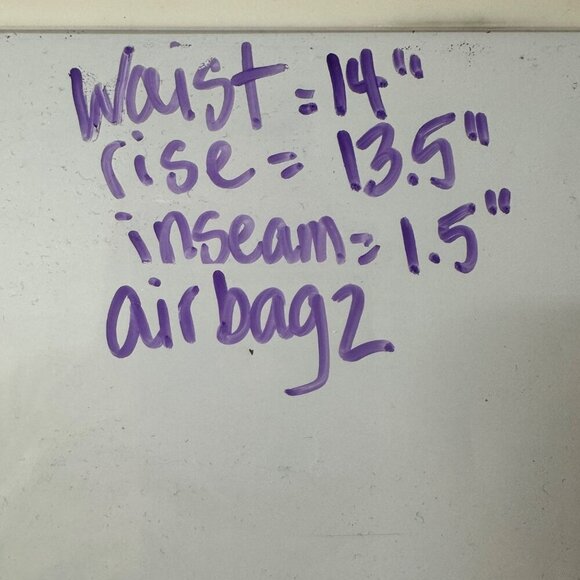 Waist = 14"
rise = 13.5"
inseam = 1.5"
airbagz